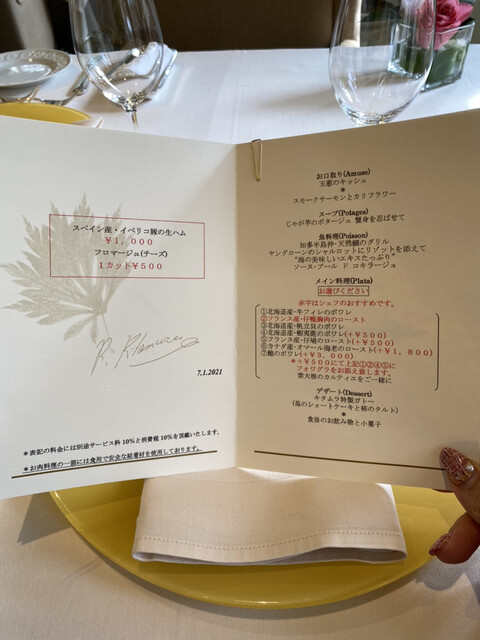 スペイン産・イベリコ豚の生ハム
￥１，０００
フロマージュ(チーズ)
１カット￥５００
7.1.2021
＊表記の料金には別途サービス料 10％と消費税 10％を頂戴いたします。
＊お肉料理の一部には食用で安全な結着材を使用しております。
お口取り(Amuse)
玉葱のキッシュ
＊
スモークサーモンとカリフラワー
スープ(Potages)
じゃが芋のポタージュ 蟹身を忍ばせて
魚料理(Poisson)
知多半島沖・天然鯛のグリル
ヤングコーンのシャルロットにリゾットを添えて
“海の美味しいエキスたっぷり”
ソース・ブール ド コキラージュ
メイン料理(Plats)
お選びください
赤字はシェフのおすすめです。
①北海道産・牛フィレのポワレ
②フランス産・仔鴨胸肉のロースト
③北海道産・帆立貝のポワレ
④北海道産・蝦夷鹿のポワレ(＋￥５００)
⑤フランス産・仔鳩のロースト(＋￥５００)
⑥カナダ産・オマール海老のロースト(＋￥１，８００)
⑦鮑のポワレ(＋￥３，０００)
＊＋￥５００にて上記①②④⑤に
フォワグラをお添え致します。
紫大根のカルティエをご一緒に
デザート(Dessert)
キタムラ特製ガトー
(苺のショートケーキと柿のタルト)
＊
食後のお飲み物と小菓子